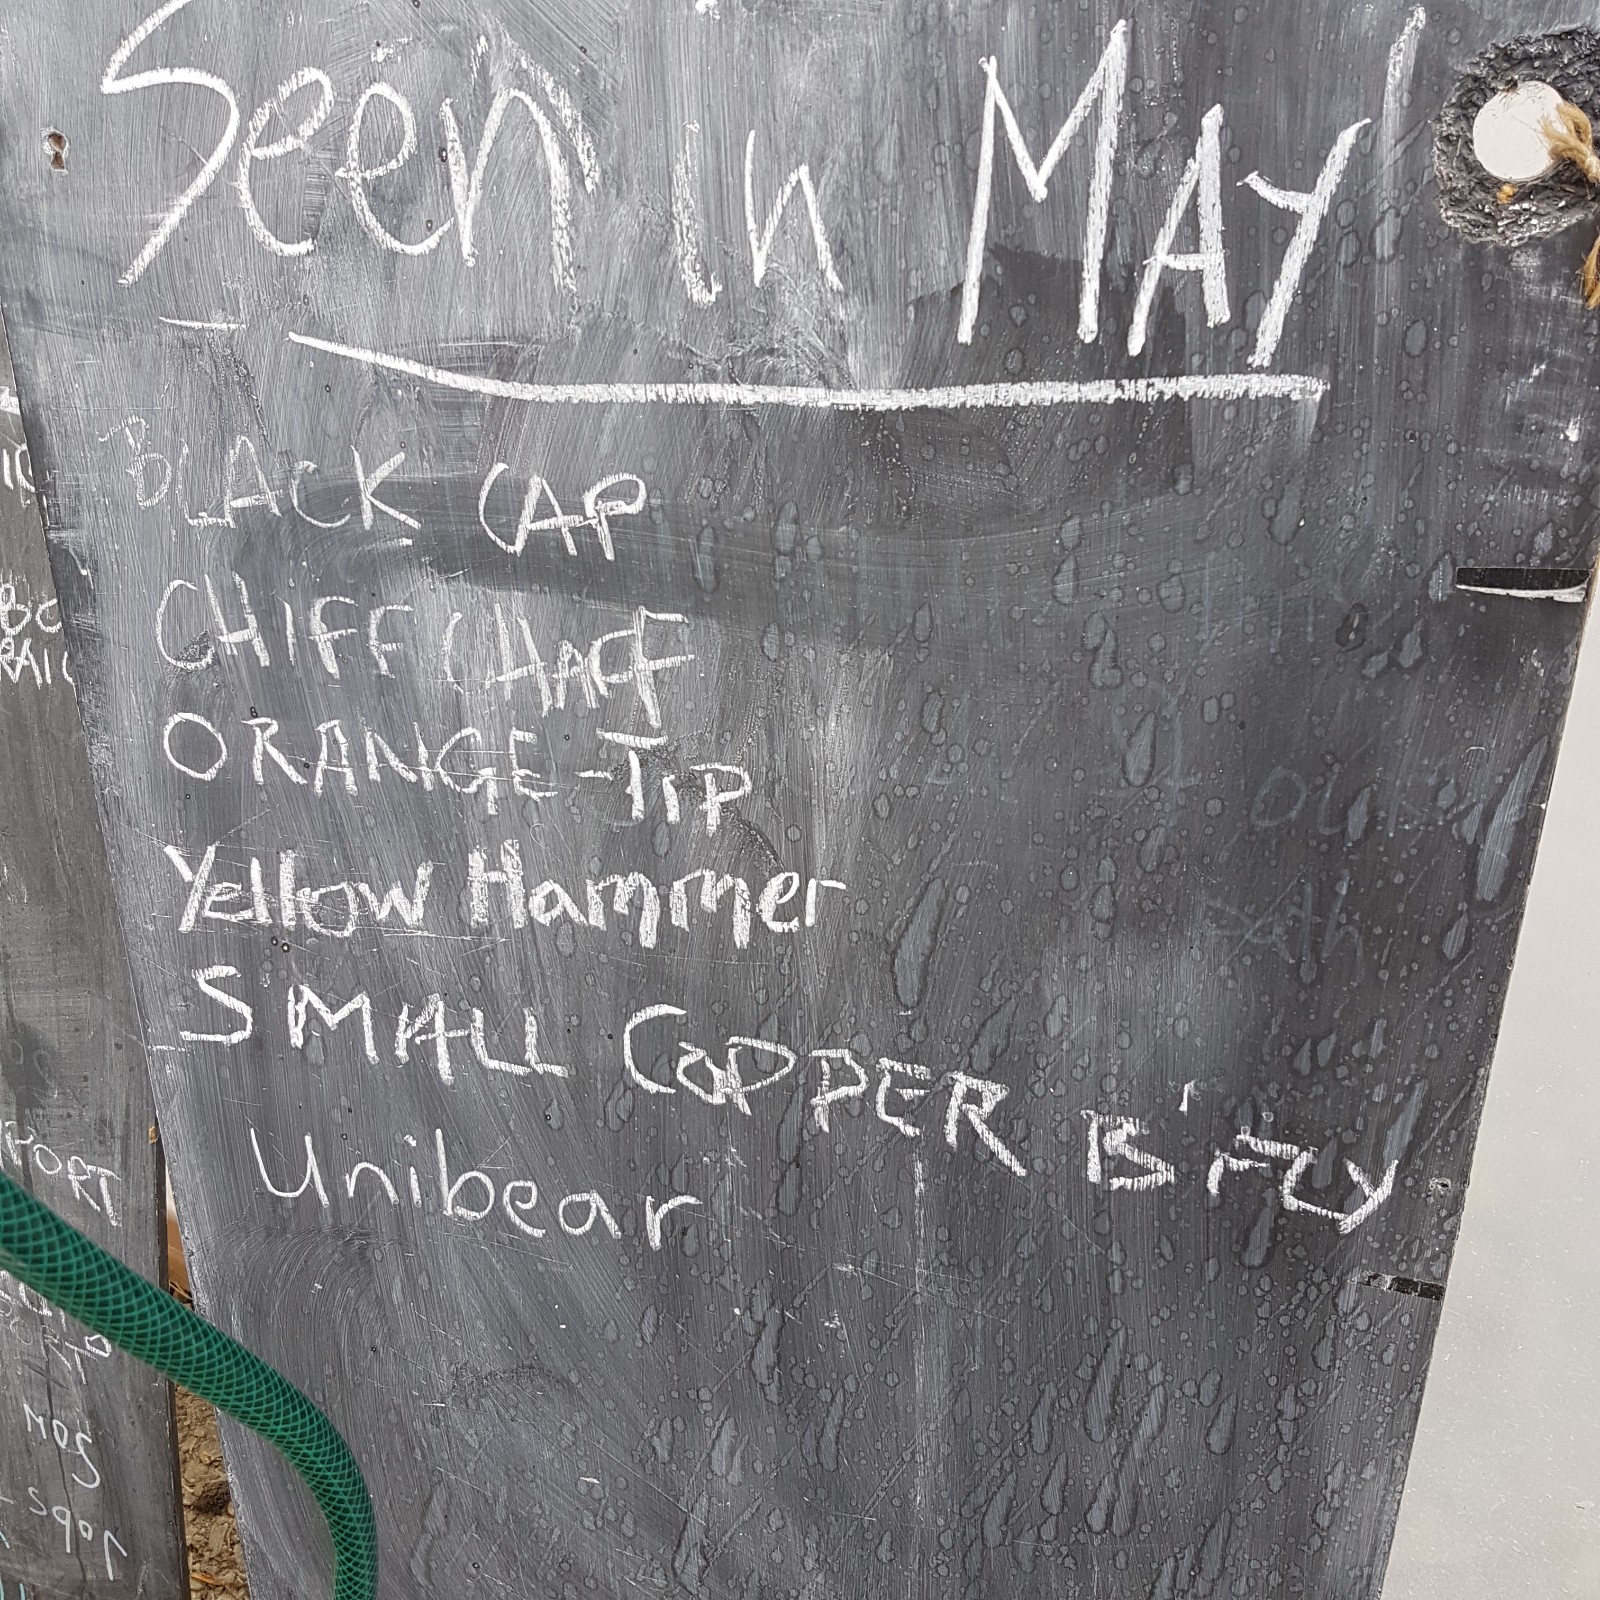 Seen in MAY
BLACK CAP
CHIFF CHAFF
ORANGE-TIP
Yellow Hammer
SMALL COPPER B'FLY
Unibear
PORT